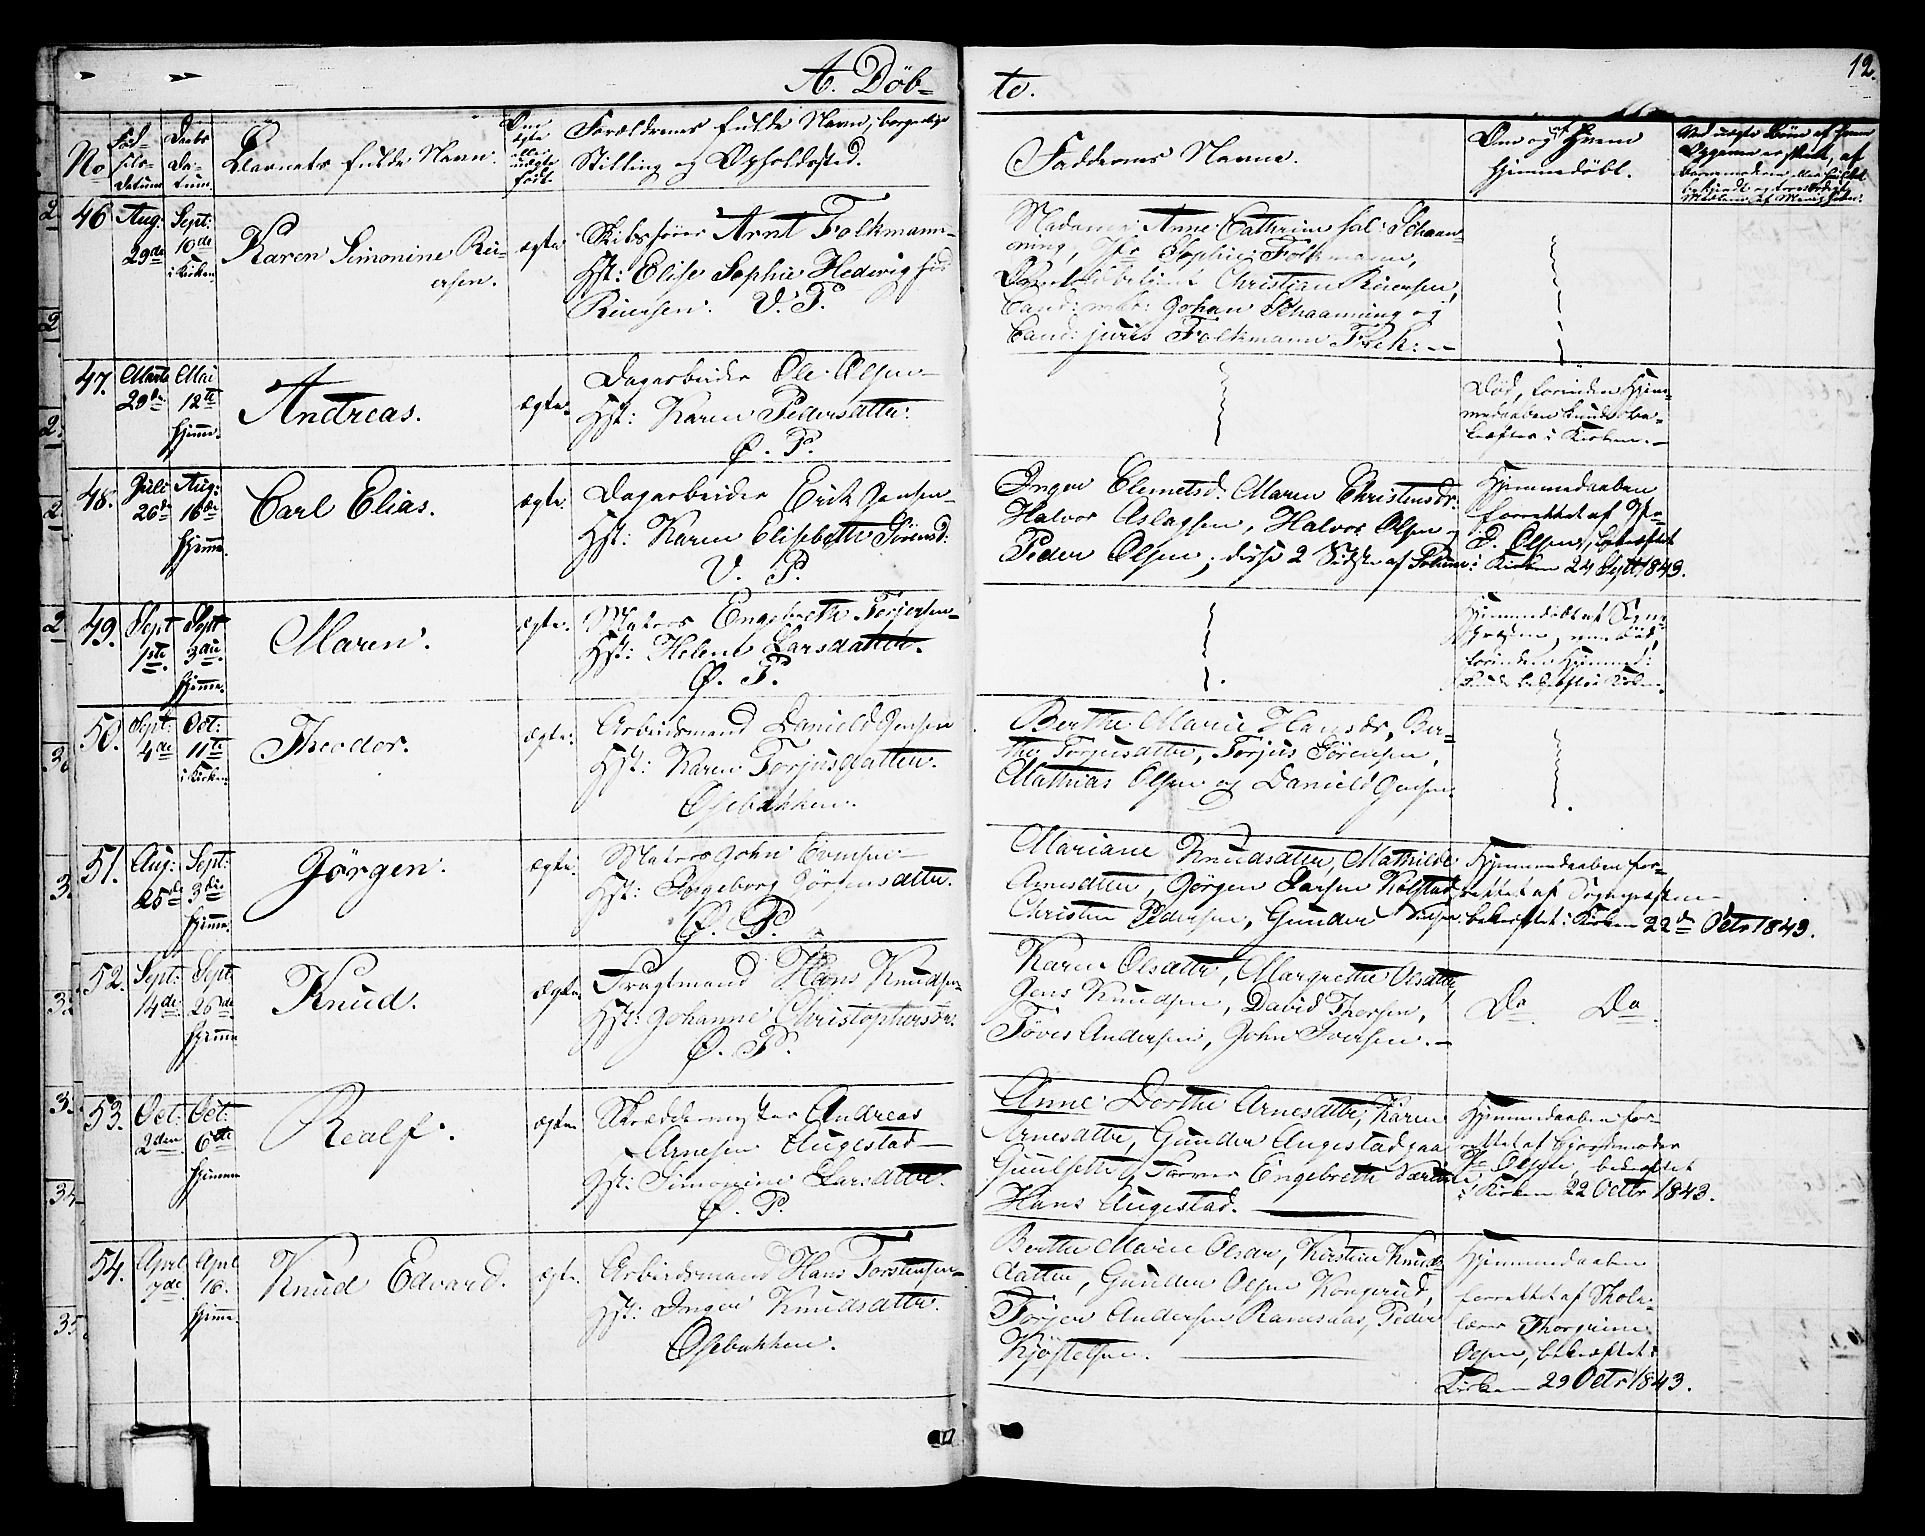 A. Döb-
te.
12.
No
Föd-
sels-
Datum
Daabs
Da-
tum.
Barnets fulde Navn.
Om
ægte
eller
uægte
født.
Forældrenes fulde Navn, borgerlige
Stilling og Opholdssted.
Faddernes Navne.
Om og af Hvem
hjemmedöbt.
46
Aug:
29de
Sept:
10de
i Kirken
Karen Simonine Rei-
ersen.
ægte
Skibsfører Arnt Folkmann
Hst: Elise Sophie Hedwig föd
Reiersen. V. P.
Madame Anne Cathrine sal. Schaan-
ning, Jfr Sophie Folkmann,
Christian Reiersen,
Cand: Johan Schaanning og
Cand: juris Folkmann
47.
Marts
29de
Mai
12te
hjemme.
Andreas.
ægte.
Dagarbeider Ole Olsen
Hst: Karen Pedersdatter.
Ø. P.
Död, forinden Hjem-
medaaben kunde be-
kræftes i Kirken.
48.
Juli
26de
Aug:
16de
hjemme.
Carl Elias.
ægte.
Dagarbeider Erik Jensen
Hst: Karen Elisebeth Sörensd:
V. P.
Inger Clemetsd. Maren Christensdr.
Halvor Aslagsen, Halvor Olsen og
Peder Olsen; disse 2 Sidste af
Hjemmedaaben
forrettet af
P. Olsen, bekræftet
i Kirken 24 Sept 1843.
49.
Sept
1ste
Sept
3die
hjemme.
Maren.
ægte.
Matros Engebreth Torjersen
Hst: Helene Larsdatter.
Ø. P.
Hjemmedöbt af Sogne-
præsten, men död,
forinden Hjemmed:
50.
Sept:
4de
Oct:
11te
i Kirken
Theodor.
ægte.
Arbeidsmand Daniel Jensen
Hst: Karen Torjusdatter.
Osebakken.
Berthe Marie Hansdr, Ber-
the Torjusdatter, Torjus Sörensen,
Mathias Olsen og Daniel Jensen.
51.
Aug:
25de
Sept:
3die
hjemme.
Jörgen.
ægte.
Matros John Evensen
Hst: Ingeborg Jörgensdatter.
Ø. P.
Mariane Knudsdatter, Mathilde
Arnesdatter, Jörgen Larsen Kolstad,
Christen Pedersen, Gunder
Hjemmedaaben for-
rettet af Sognepræsten
bekræftet i Kirken 22de Octr 1843.
52.
Sept:
14de
Sept
26de
hjemme
Knud.
ægte.
Fragtmand Hans Knudsen
Hst: Johanne Christophersdr.
Ø. P.
Karen Olsdatter, Margrethe Olsdatter,
Jens Knudsen, David Thersen,
Töver Andersen, John Iversen.
Do Do.
53.
Oct:
2den
Oct:
6te
hjemme
Realf.
ægte.
Skræddermester Andreas
Arnesen Augestad
Hst: Simonine Larsdatter.
Ø. P.
Anne Dorthe Arnesdatter, Karen
Arnesdatter, Gunder Augestad paa
Gulset, Farver Engebreth
Hans Augestad.
Hjemmedaaben for-
rettet af Gjordemoder
Olsen, bekræftet
i Kirken 22 Octbr 1843.
54.
April
7de
April
18.
hjemme.
Knud Edvard.
ægte.
Arbeidsmand Hans Torstensen
Hst: Inger Knudsdatter.
Osebakken.
Berthe Marie Olsdr, Kirstine Knuds-
datter, Gunder Olsen Kongerud,
Torjer Andersen Ramsaas, Peder
Kjöstelsen.
Hjemmedaaben
forrettet af Skole-
lærer Thorgrim
Olsen, bekræftet i
Kirken 29 Octr 1843.